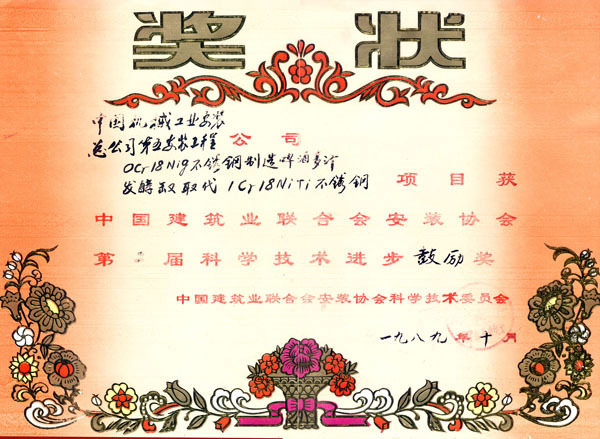 奖状
中国机械工业安装
总公司第五安装工程 公司
0Cr18Ni9不锈钢制造啤酒
发酵 取代1Cr18NiTi不锈钢 项目获
中国建筑业联合会安装协会
第 届科学技术进步鼓励奖
中国建筑业联合会安装协会科学技术委员会
一九八九年十月